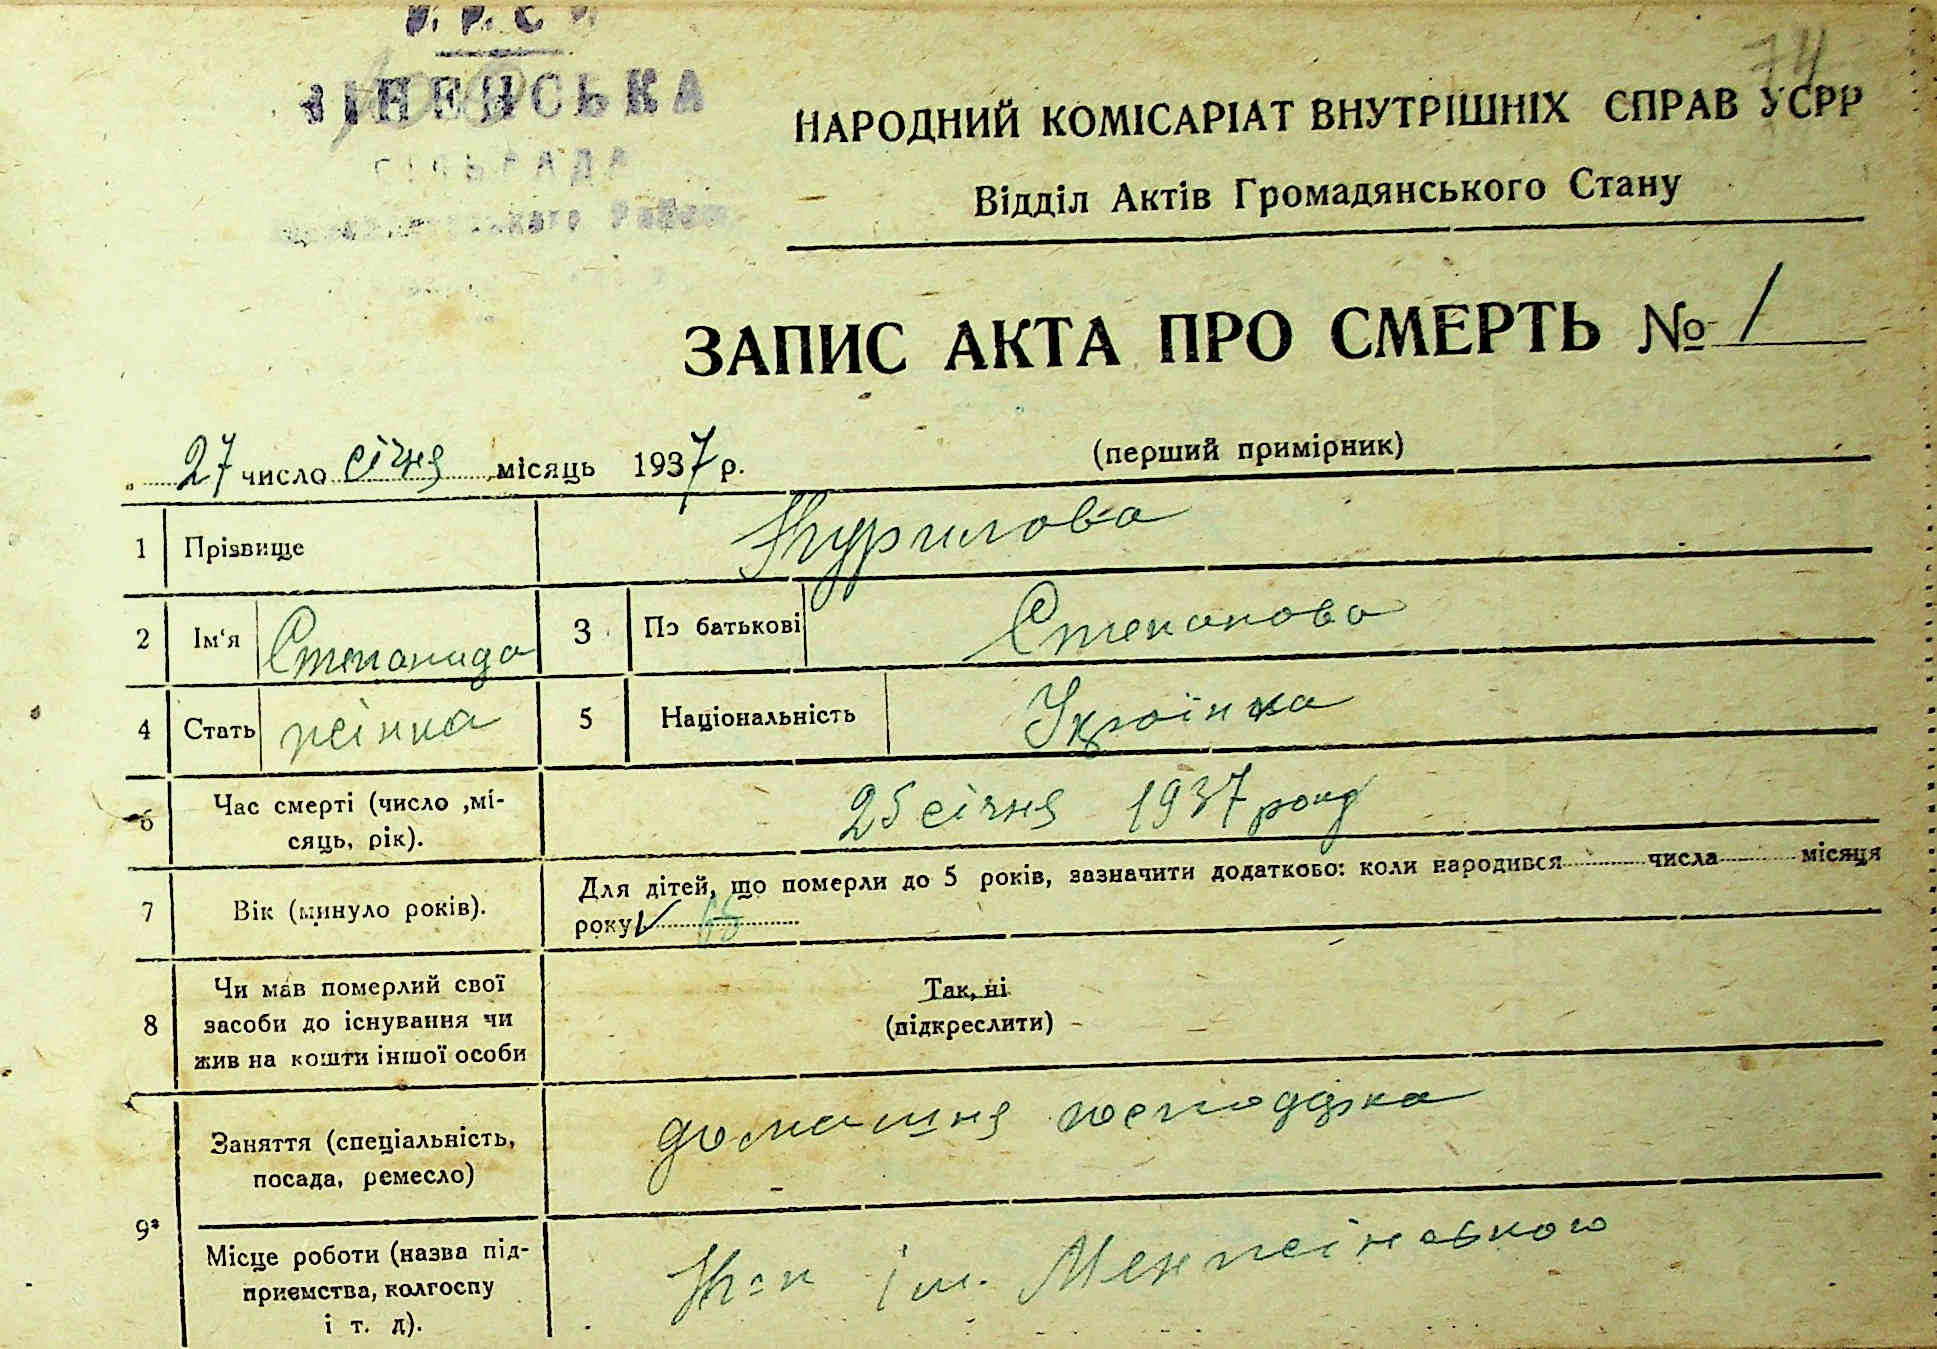 У.Р.С.Р
СІЛЬРАДА
Района
74
НАРОДНИЙ КОМІСАРІАТ ВНУТРІШНІХ СПРАВ УСРР
Відділ Актів Громадянського Стану
ЗАПИС АКТА ПРО СМЕРТЬ № 1
27 число січня місяць 1937 р.
(перший примірник)
1 Прізвище Курилова
2 Ім'я Степанида 3 По батькові Степанова
4 Стать жінка 5 Національність Українка
6 Час смерті (число ,мі-
сяць, рік). 25 січня 1937 року
7 Вік (минуло років). Для дітей, що померли до 5 років, зазначити додатково: коли народився числа місяця
року 65
8 Чи мав померлий свої
засоби до існування чи
жив на кошти іншої особи
Так, ні
(підкреслити)
9 Заняття (спеціальність,
посада, ремесло) домашня господарка
Місце роботи (назва під-
приємства, колгоспу
і т. д). К-п ім. Менжінського